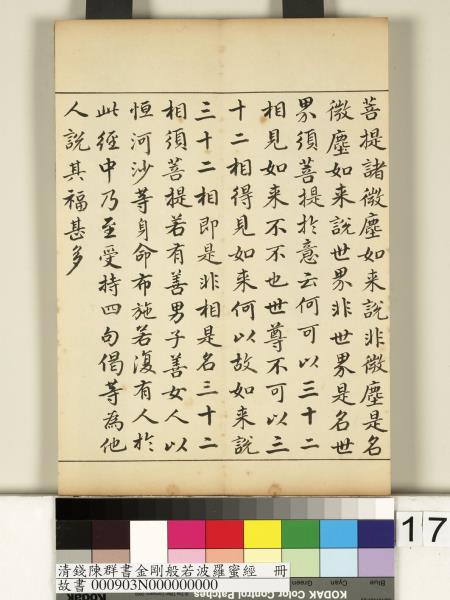 菩提諸微塵如来說非微塵是名
微塵如来說世界非世界是名世
界須菩提於意云何可以三十二
相見如来不不也世尊不可以三
十二相得見如来何以故如来說
三十二相即是非相是名三十二
相須菩提若有善男子善女人以
恒河沙等身命布施若復有人於
此經中乃至受持四句偈等為他
人說其福甚多
17
Blue Cyan Green
清錢陳群書金剛般若波羅蜜經 冊
故書 000903N000000000
KODAK Color Control Patches